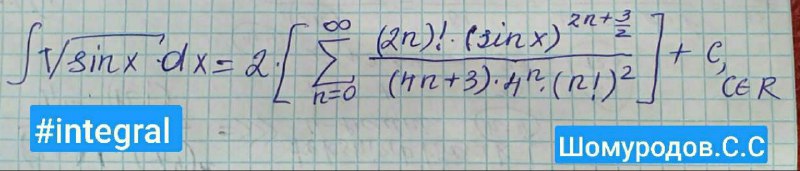 ∫√sinx · dx = 2 · [ ∑_{n=0}^{∞} \frac{(2n)! · (sinx)^{2n+\frac{3}{2}}}{(4n+3) · 4^n · (n!)^2} ] + C, C∈R
#integral
Шомуродов.С.С